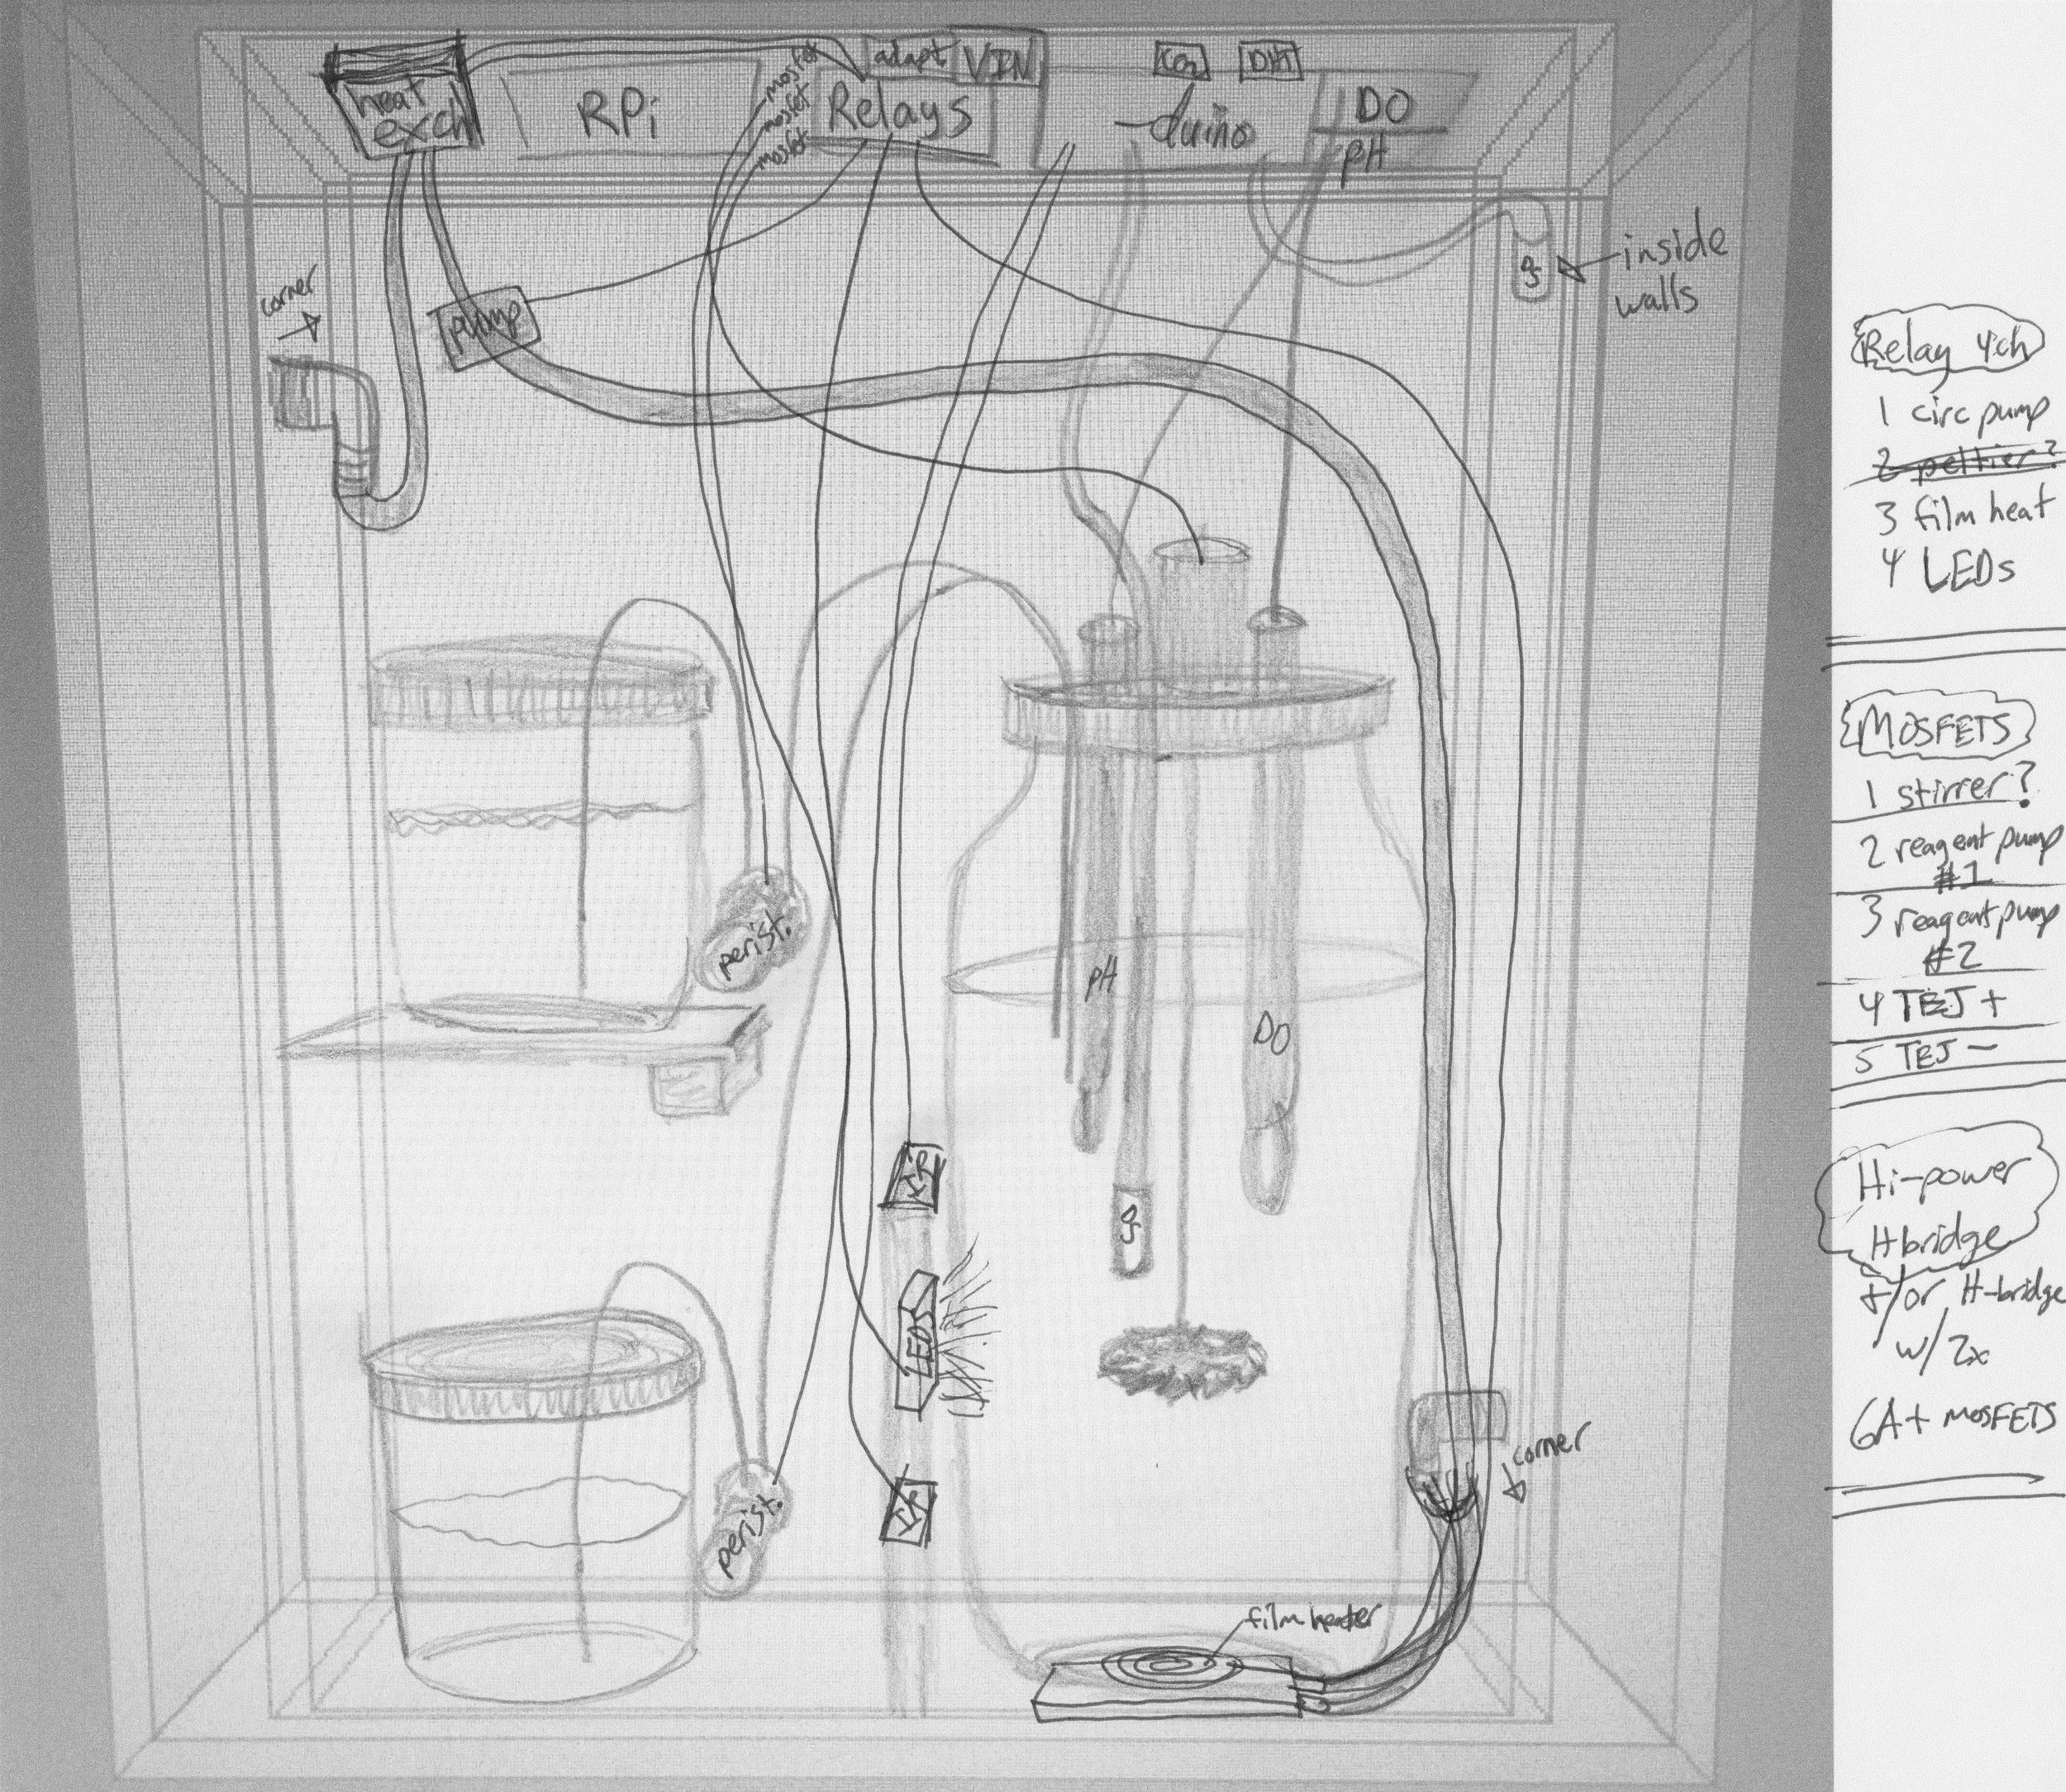 heat
exch
RPi
mosfet
mosfet
mosfet
adapt
VIN
Relays
CO2
DHT
-duino
DO
pH
corner
pump
inside
walls
perist.
pH
DO
IR
LEDS
IR
perist.
corner
film heater
Relay 4ch
1 circ pump
2 peltier?
3 film heat
4 LEDs
MOSFETS
1 stirrer?
2 reagent pump
#1
3 reagent pump
#2
4 TEJ +
5 TEJ -
Hi-power
H bridge
+/or H-bridge
w/ 2x
6A+ MOSFETS